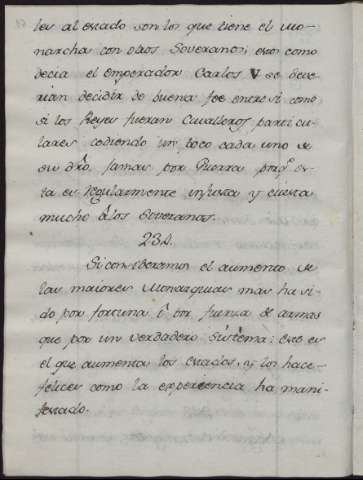 les al estado son los que tiene el Mo-
narcha con otros Soveranos; estos como
decia el emperador Carlos V se deve-
rian decidir de buena fee entre si como
si los Reyes fueran Cavalleros particu-
lares cediendo un poco cada uno de
su dro, Jamas por Guerra porq.e es-
ta es regularmente injusta y cuesta
mucho á los Soveranos.
234.
Si consideramos el aumento de
las maiores Monarquias mas ha si-
do por fortuna ó por fuerza de armas
que por un verdadero Sistema: este es
el que aumenta los estados, y los hace
felices como la experiencia ha mani-
festado.